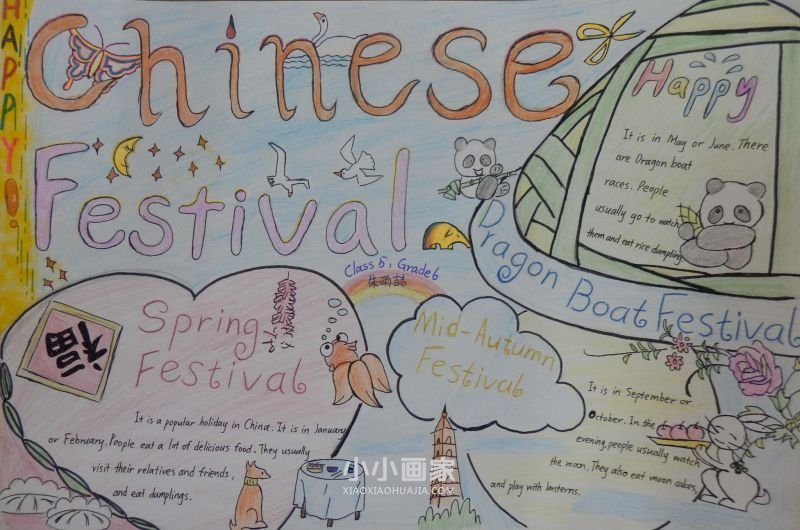 HAPPY
Chinese
Festival
Class 5, Grade 6
朱雨喆
Happy
It is in May or June. There
are Dragon boat
races. People
usually go to watch
them and eat rice dumpling.
Dragon Boat Festival
福
Spring
Festival
It is a popular holiday in China. It is in January
or February. People eat a lot of delicious food. They usually
visit their relatives and friends,
and eat dumplings.
Mid-Autumn
Festival
It is in September or
October. In the
evening, people usually watch
the moon. They also eat moon cakes,
and play with lanterns.
小小画家
XIAOXIAOHUAJIA.COM